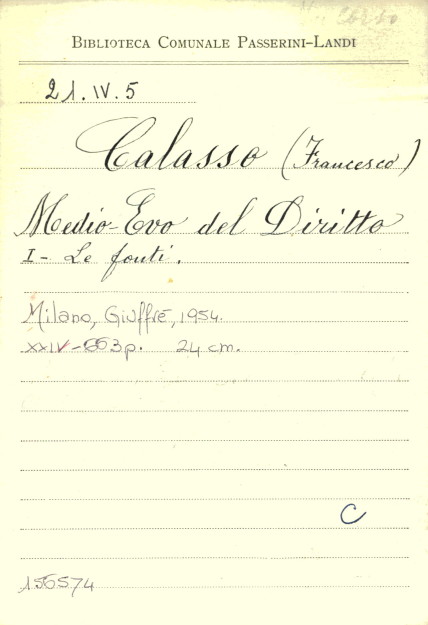 BIBLIOTECA COMUNALE PASSERINI-LANDI
21.IV.5
Calasso (Francesco)
Medio-Evo del Diritto
I- Le fonti.
Milano, Giuffrè, 1954.
XXIV-663p. 24 cm.
C
156574